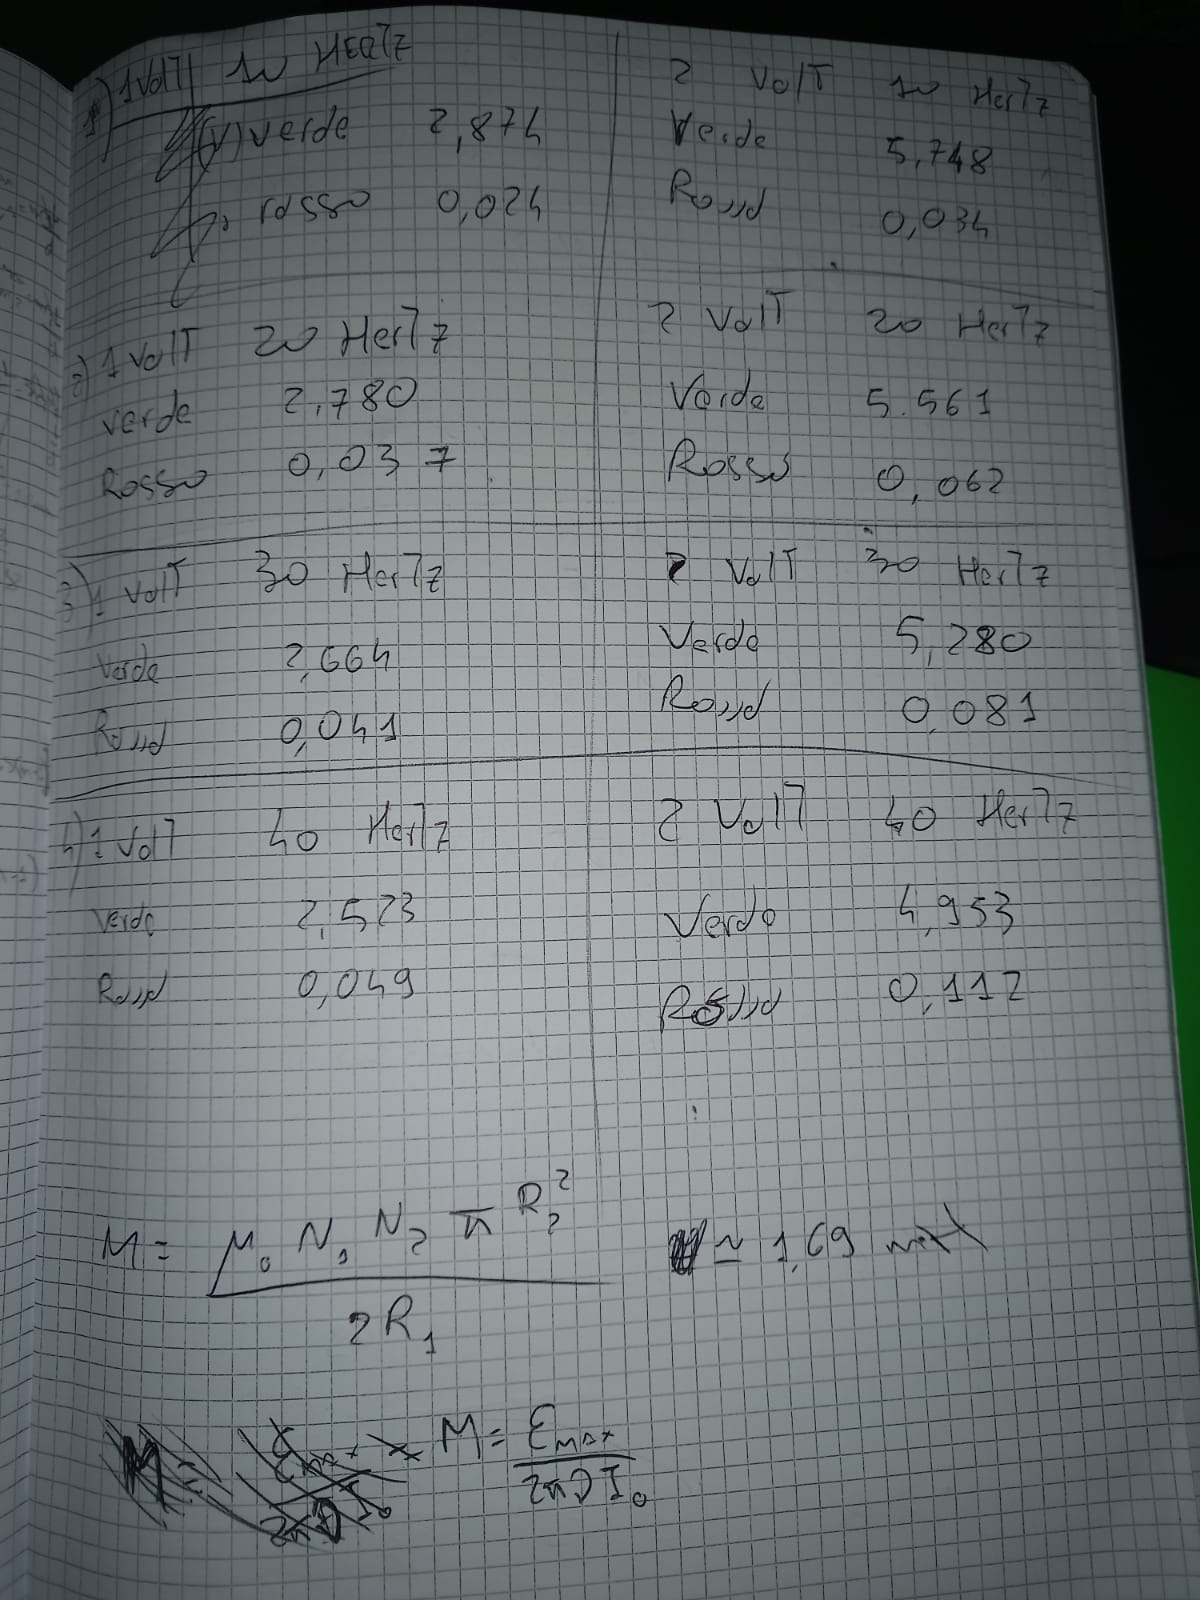 1) 1 Volt 10 HERTZ
(V) verde 2,874
rosso 0,024
2 Volt 10 Hertz
Verde 5,748
Rosso 0,034
2) 1 Volt 20 Hertz
verde 2,780
Rosso 0,037
2 Volt 20 Hertz
Verde 5.561
Rosso 0,062
3) 1 Volt 30 Hertz
Verde 2,664
Rosso 0,041
2 Volt 30 Hertz
Verde 5,280
Rosso 0,081
4) 1 Volt 40 Hertz
Verde 2,523
Rosso 0,049
2 Volt 40 Hertz
Verde 4,953
Rosso 0,112
M = μ₀ N₁ N₂ π R₂² / 2R₁ ≃ 1,69 mH
M = Ɛmax / 2πƒI₀